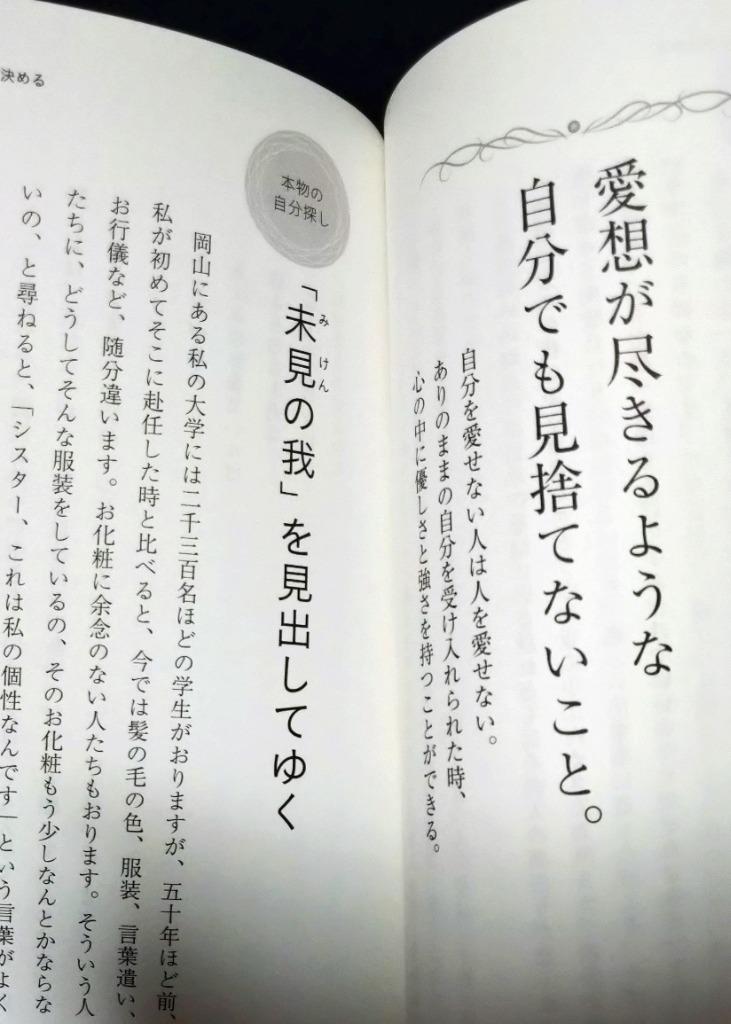 愛想が尽きるような
自分でも見捨てないこと。
自分を愛せない人は人を愛せない。
ありのままの自分を受け入れられた時、
心の中に優しさと強さを持つことができる。
決める
本物の
自分探し
「未見の我」を見出してゆく
みけん
岡山にある私の大学には二千三百名ほどの学生がおりますが、五十年ほど前、
私が初めてそこに赴任した時と比べると、今では髪の毛の色、服装、言葉遣い、
お行儀など、随分違います。お化粧に余念のない人たちもおります。そういう人
たちに、どうしてそんな服装をしているの、そのお化粧もう少しなんとかならな
いの、と尋ねると、「シスター、これは私の個性なんです」という言葉がよく